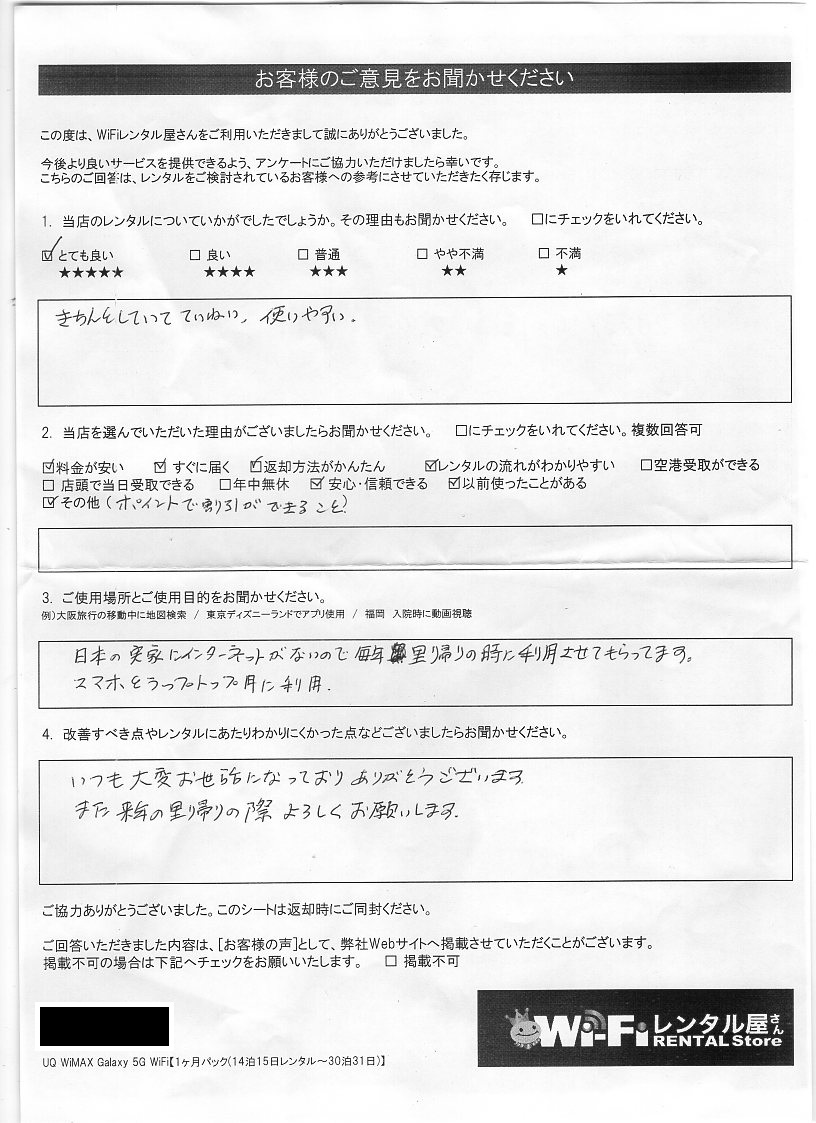 お客様のご意見をお聞かせください
この度は、WiFiレンタル屋さんをご利用いただきまして誠にありがとうございました。
今後より良いサービスを提供できるよう、アンケートにご協力いただけましたら幸いです。
こちらのご回答は、レンタルをご検討されているお客様への参考にさせていただきたく存じます。
1. 当店のレンタルについていかがでしたでしょうか。その理由もお聞かせください。 □にチェックをいれてください。
☑ とても良い □ 良い □ 普通 □ やや不満 □ 不満
★★★★★ ★★★★ ★★★ ★★ ★
きちんとしていて ていねい、使いやすい。
2. 当店を選んでいただいた理由がございましたらお聞かせください。 □にチェックをいれてください。複数回答可
☑料金が安い ☑ すぐに届く ☑返却方法がかんたん ☑レンタルの流れがわかりやすい □空港受取ができる
□ 店頭で当日受取できる □年中無休 ☑ 安心・信頼できる ☑以前使ったことがある
☑その他 (ポイントで割引ができること)
3. ご使用場所とご使用目的をお聞かせください。
例)大阪旅行の移動中に地図検索 / 東京ディズニーランドでアプリ使用 / 福岡 入院時に動画視聴
日本の実家にインターネットがないので毎年里り帰りの時に利用させてもらってます。
スマホとラップトップ用に利用.
4. 改善すべき点やレンタルにあたりわかりにくかった点などございましたらお聞かせください。
いつも大変お世話になっており ありがとうございます
また来年の里り帰りの際 よろしくお願いします.
ご協力ありがとうございました。このシートは返却時にご同封ください。
ご回答いただきました内容は、[お客様の声]として、弊社Webサイトへ掲載させていただくことがございます。
掲載不可の場合は下記へチェックをお願いいたします。 □ 掲載不可
Wi-Fiレンタル屋さん
RENTAL Store
UQ WiMAX Galaxy 5G WiFi【1ヶ月パック(14泊15日レンタル～30泊31日)】